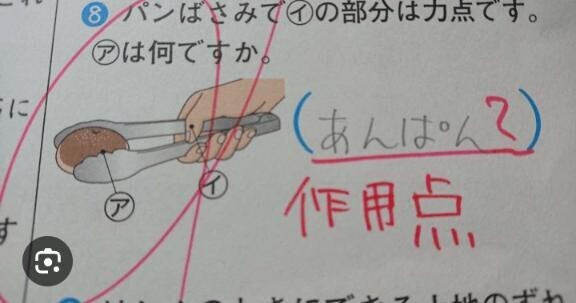 ❽ パンばさみで㋑の部分は力点です。
㋐は何ですか。
(あんぱん?)
作用点
㋐
㋑
に
す